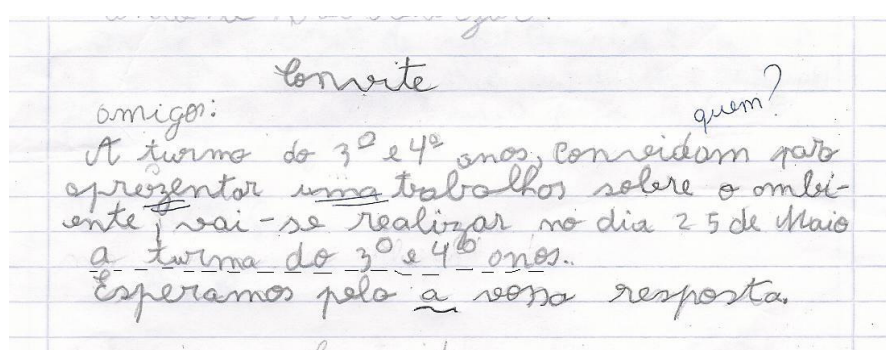 Convite
quem?
amigos:
A turma do 3º e 4º anos, convidam para
aprezentar uma trabalhos sobre o ambi-
ente, vai-se realizar no dia 25 de Maio
a turma do 3º e 4º anos..
Esperamos pela a vossa resposta.